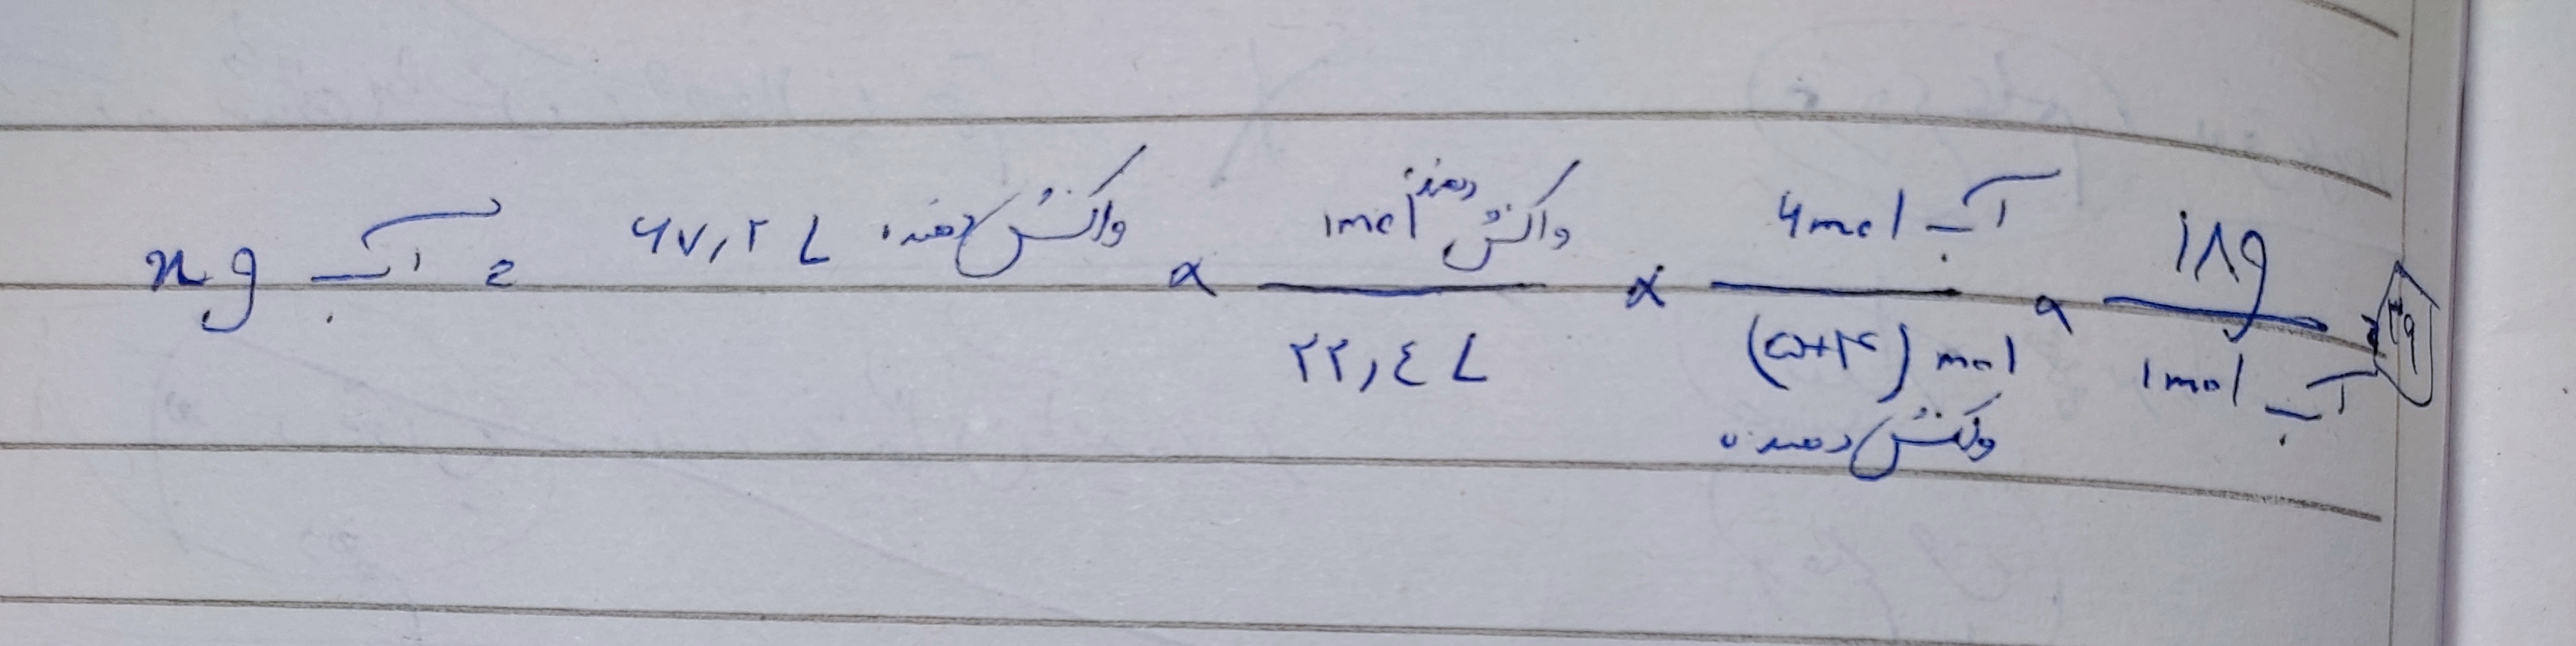 x g آب = ۶۷,۲ L واکنش دهنده × ۱mol واکنش دهنده / ۲۲,٤ L × ۶mol آب / (۵+۴) mol واکنش دهنده × ۱۸g / ۱mol آب =